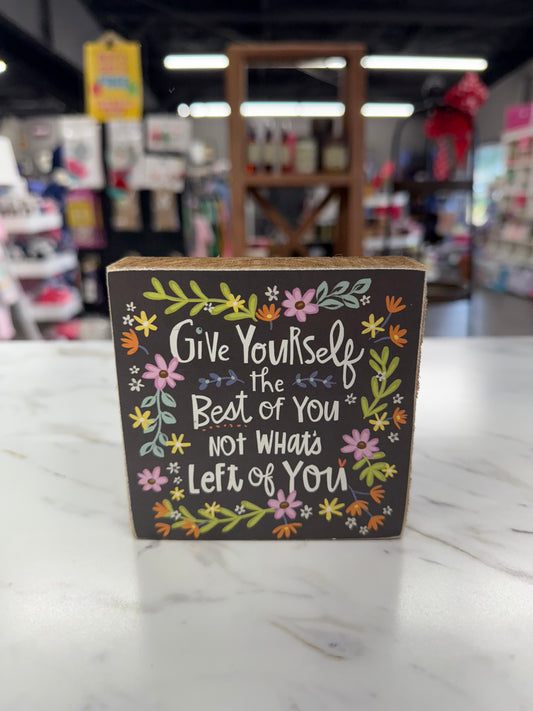 Give Yourself
the
Best of You
not what's
Left of You